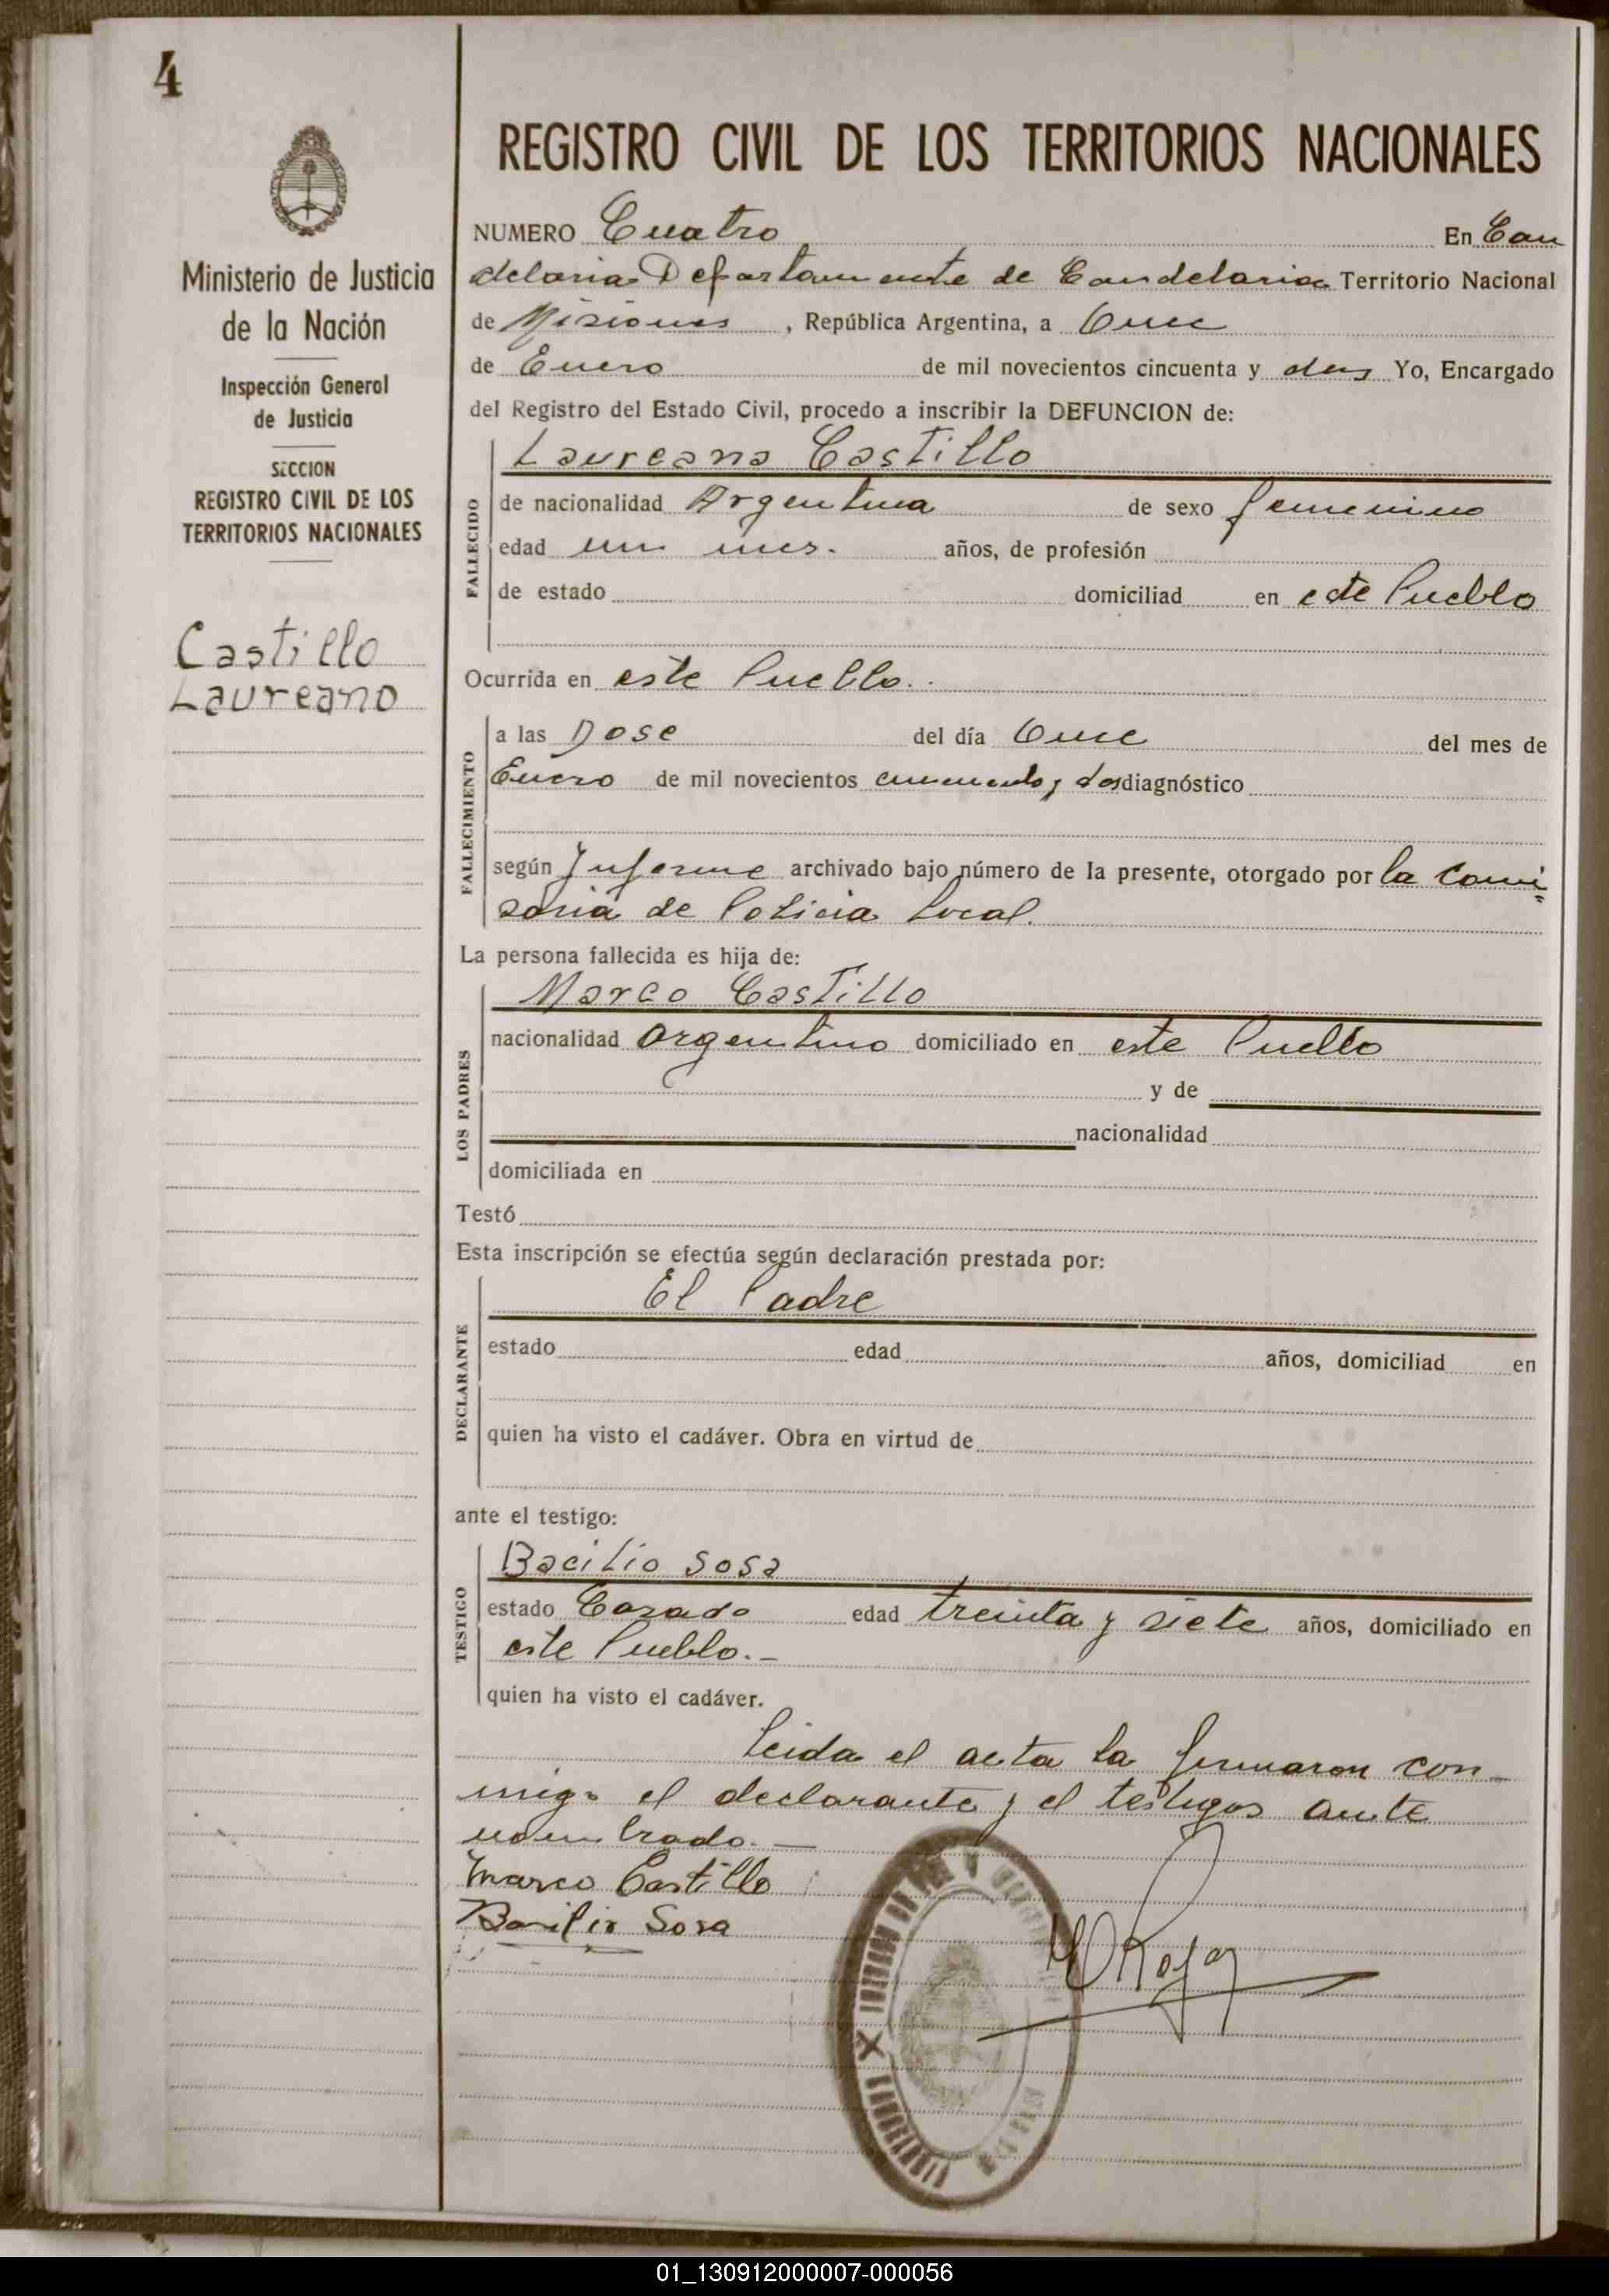 4
Ministerio de Justicia
de la Nación
Inspección General
de Justicia
SECCION
REGISTRO CIVIL DE LOS
TERRITORIOS NACIONALES
Castillo
Laureano
REGISTRO CIVIL DE LOS TERRITORIOS NACIONALES
NUMERO Cuatro En Can
delaria Departamente de Candelaria Territorio Nacional
de Misiones , República Argentina, a Once
de Enero de mil novecientos cincuenta y dos Yo, Encargado
del Registro del Estado Civil, procedo a inscribir la DEFUNCION de:
Laureana Castillo
FALLECIDO
de nacionalidad Argentina de sexo femenino
edad un mes. años, de profesión
de estado domiciliad en este Pueblo
Ocurrida en este Pueblo.
FALLECIMIENTO
a las Dose del día Once del mes de
Enero de mil novecientos cincuenta y dos diagnóstico
según Informe archivado bajo número de la presente, otorgado por la Comi
saria de Policia Local.
La persona fallecida es hija de:
LOS PADRES
Marco Castillo
nacionalidad Argentino domiciliado en este Pueblo
y de
nacionalidad
domiciliada en
Testó
Esta inscripción se efectúa según declaración prestada por:
DECLARANTE
El Padre
estado edad años, domiciliad en
quien ha visto el cadáver. Obra en virtud de
ante el testigo:
TESTIGO
Bacilio Sosa
estado Casado edad treinta y siete años, domiciliado en
este Pueblo.-
quien ha visto el cadáver.
Leida el acta la firmaron con
migo el declarante y el testigos ante
nombrado.—
Marco Castillo
Basilio Sosa
Rojas
01_130912000007-000056